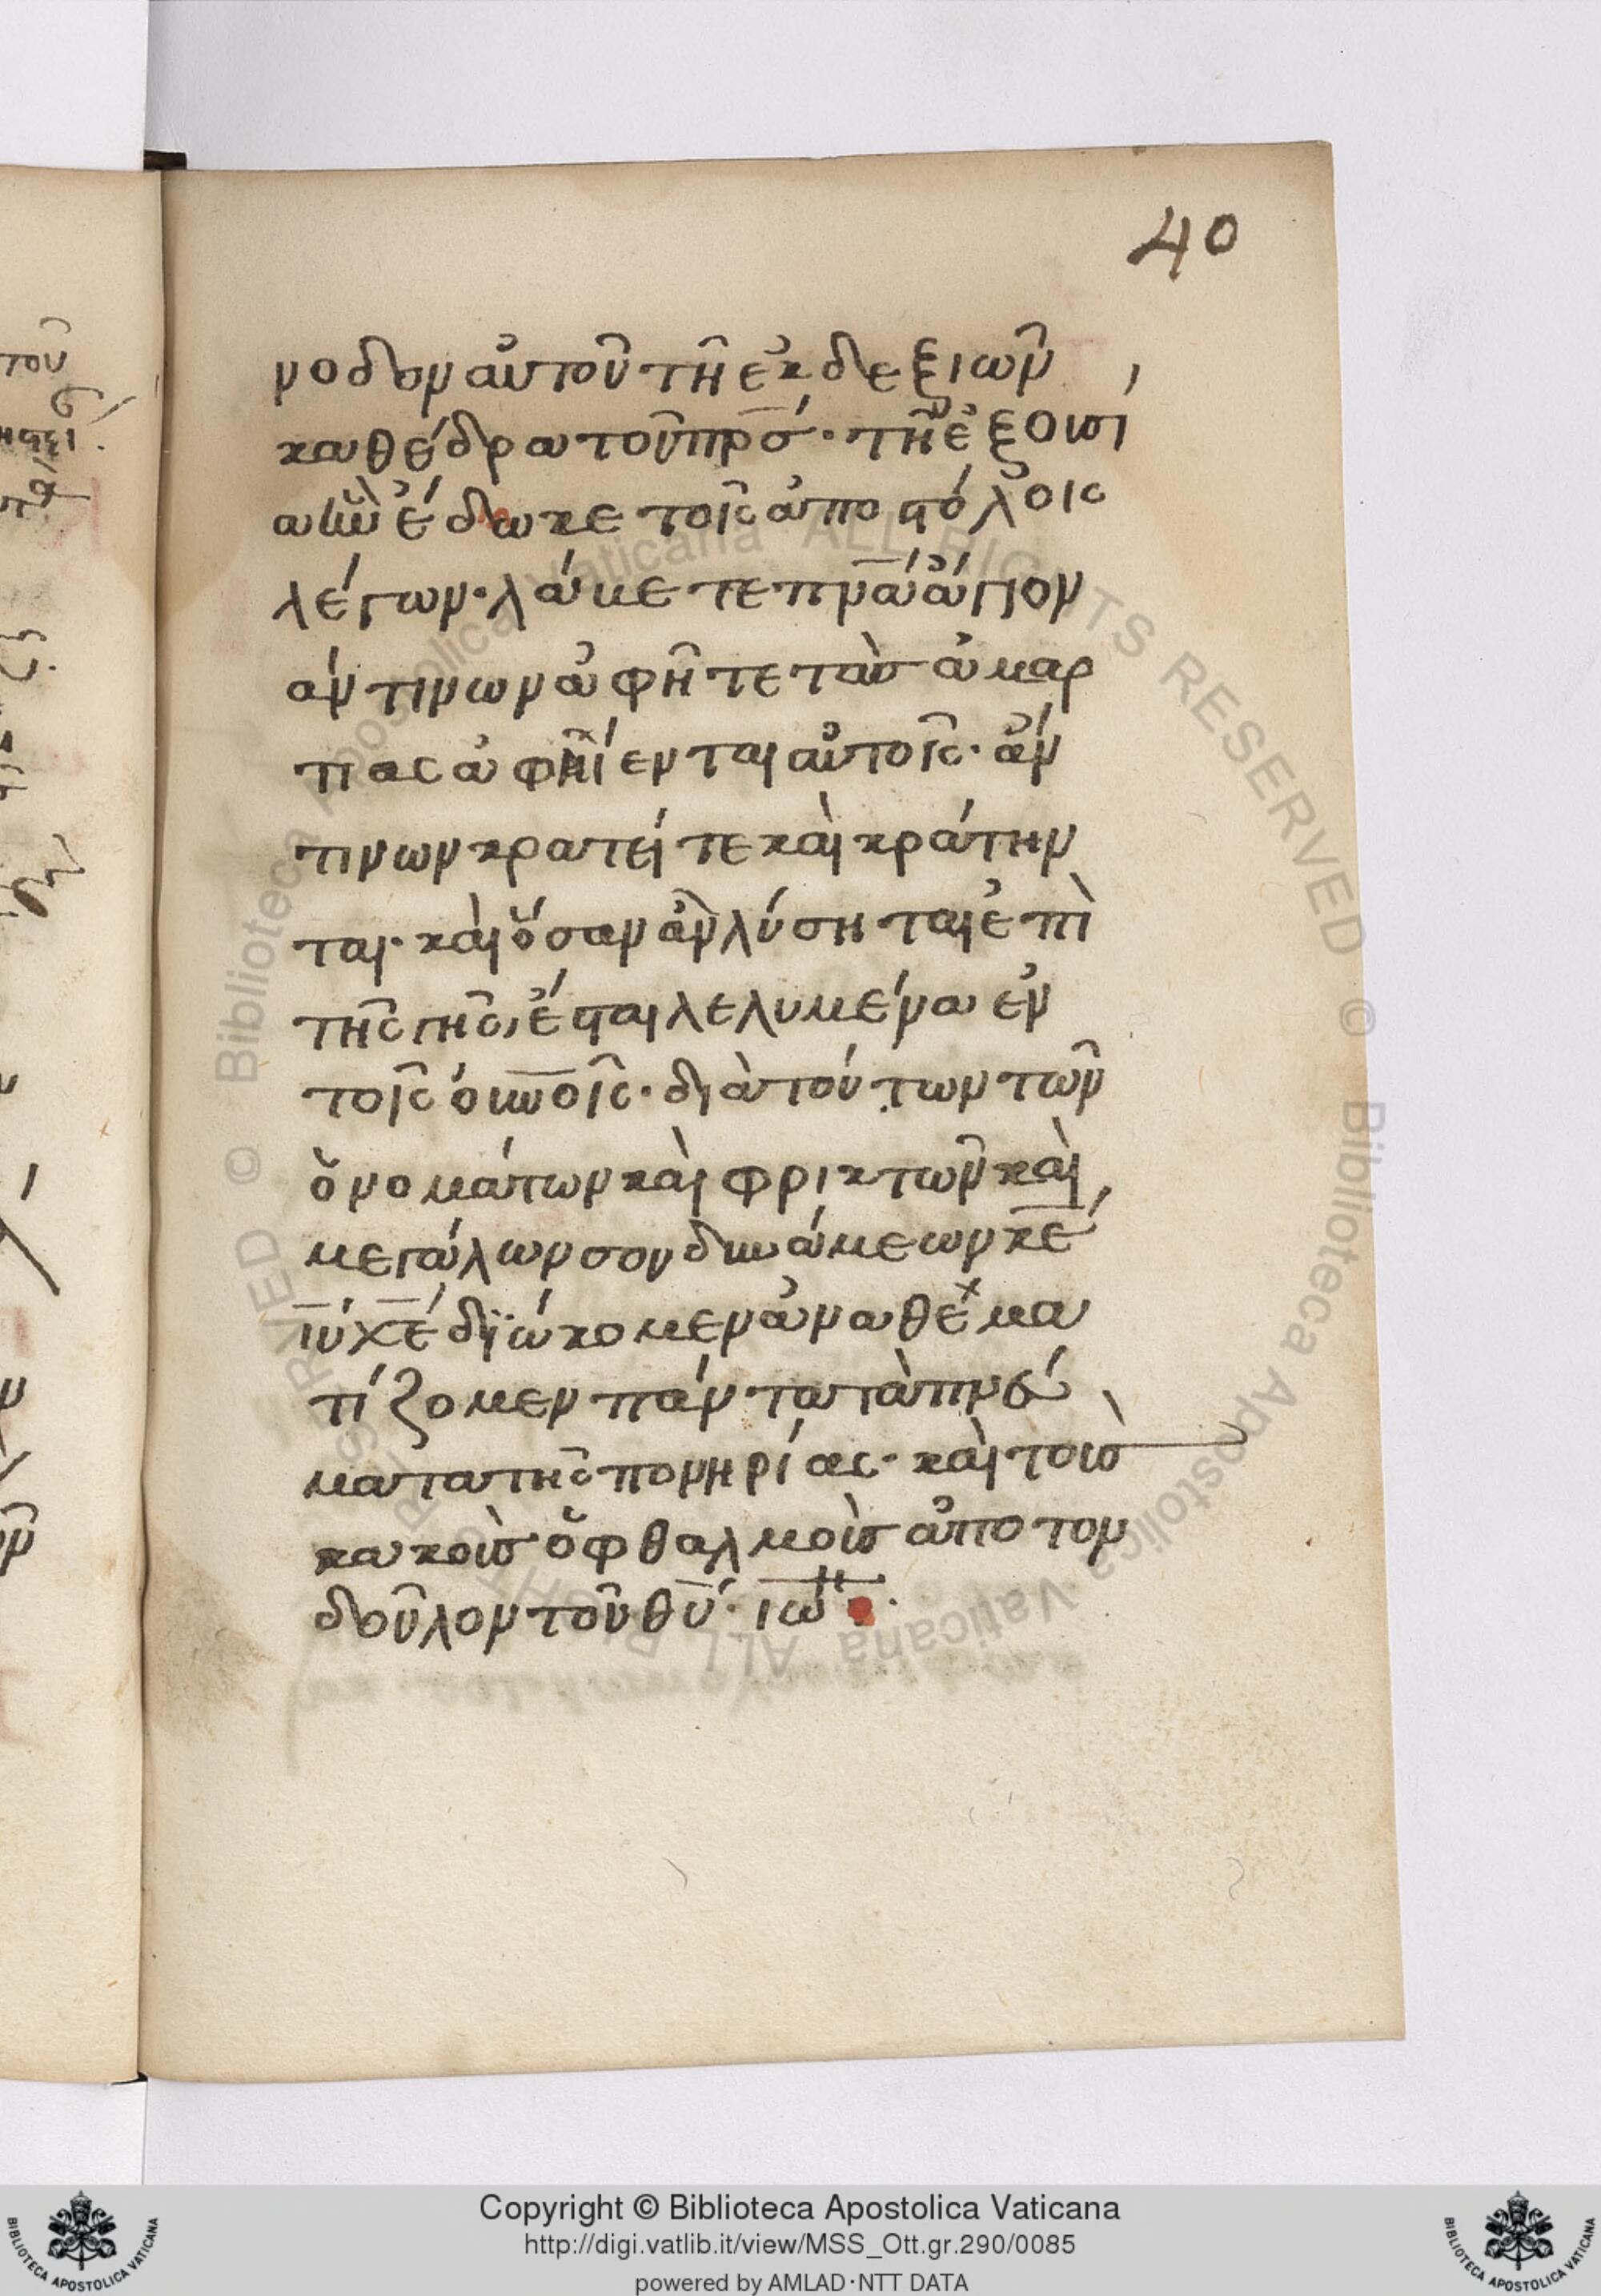 40
νοδον αὐτοῦ τῆ ἐκ δεξιῶν
καθέδρα τοῦ πρσ́. τῆ ἐξουσί
α ἣν ἔδωκε τοῖς ἀποστόλοις
λέγων. λάμετε πνᾶ ἅγιον
άν τινων ἀφῆτε τὰσ ἀμαρ
τιας ἀφίενται αὐτοῖς. ἄν
τινων κρατείτε καὶ κράτην
ται. καὶ ὅσαν ἂν λύσηται ἐπὶ
τῆς γῆς, ἔσται λελυμένα ἐν
τοῖς ουνοῖς. διὰ τούτων τῶν
ὀνομάτων καὶ φρικτῶν καὶ
μεγάλων σου δυνάμεων κέ
ιύ χέ διώκομεν ἀναθεμα
τίζομεν πάντα τὰ πνεύ
ματα τῆς πονηρίας. καὶ τοισ
κακοὶσ ὀφθαλμοὶσ ἀπο τον
δοῦλον τοῦ θύ. ιω
Copyright © Biblioteca Apostolica Vaticana
http://digi.vatlib.it/view/MSS_Ott.gr.290/0085
powered by AMLAD·NTT DATA